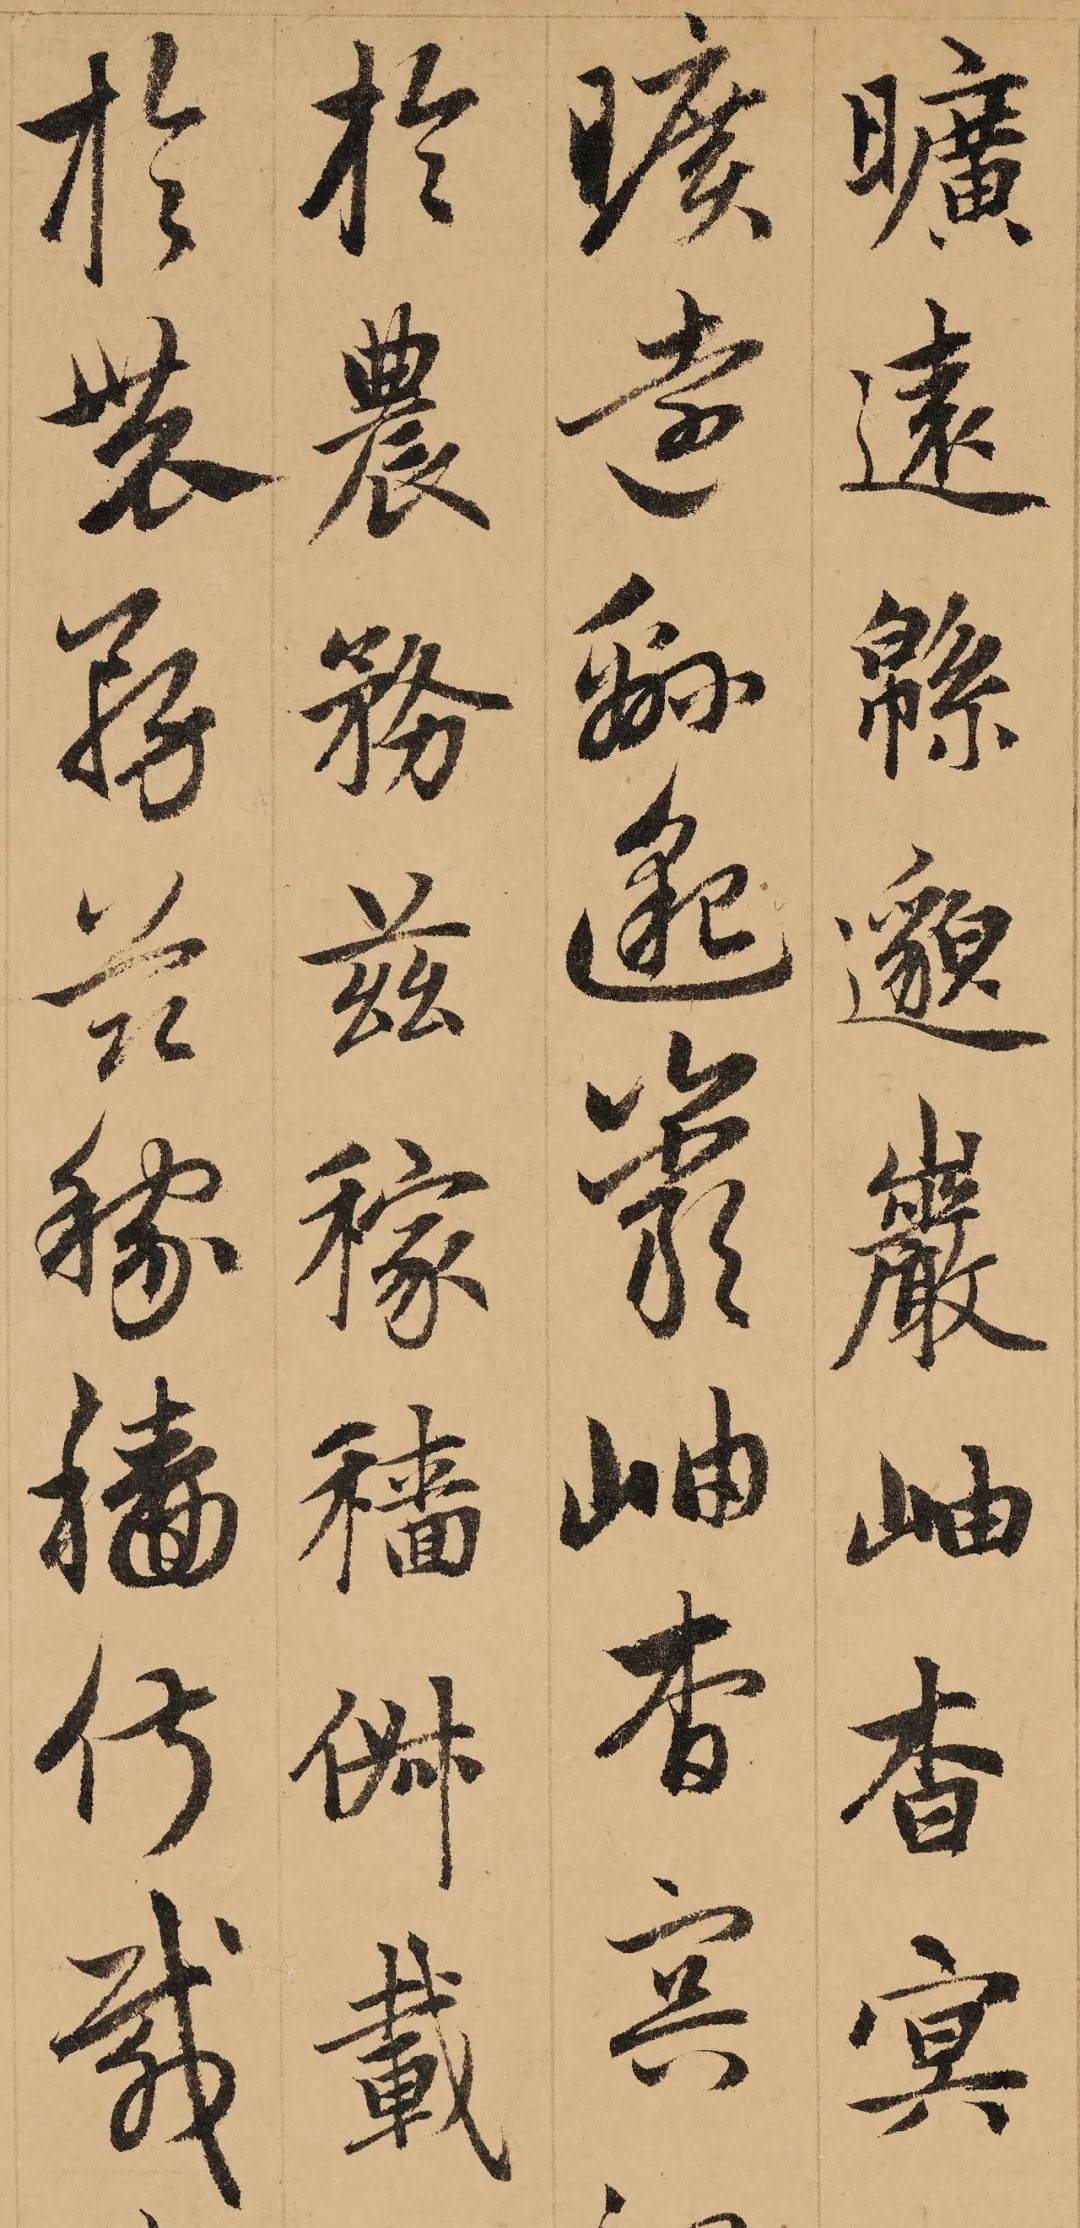 曠遠緜邈巖岫杳冥
曠遠緜邈巖岫杳冥
於農務茲稼穡俶載
於農務茲稼穡俶載